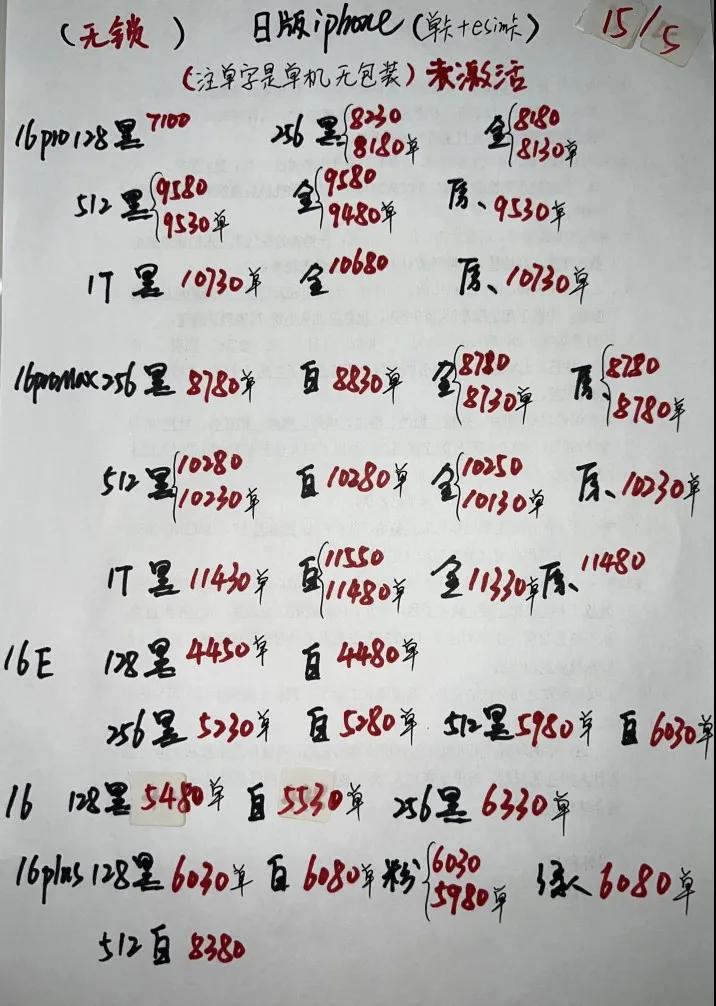 (无锁) 日版iphone(单卡+esim卡) 15/5
(注单字是单机无包装)未激活
16pro128黑7100 256黑{8230 8180单 金{8180 8130单
512黑{9580 9530单 金{9580 9480单 原、9530单
1T黑10730单 金10680 原、10730单
16promax256黑8780单 白8830单 金{8780 8730单 原、{8780 8780单
512黑{10280 10230单 白10280单 金{10250 10130单 原、10230单
1T黑11430单 白{11550 11480单 金11330单 原、11480
16E 128黑4450单 白4480单
256黑5230单 白5280单 512黑5980单 白6030单
16 128黑5480单 白5530单 256黑6330单
16plus128黑6030单 白6080单 粉{6030 5980单 6080单
512白8380